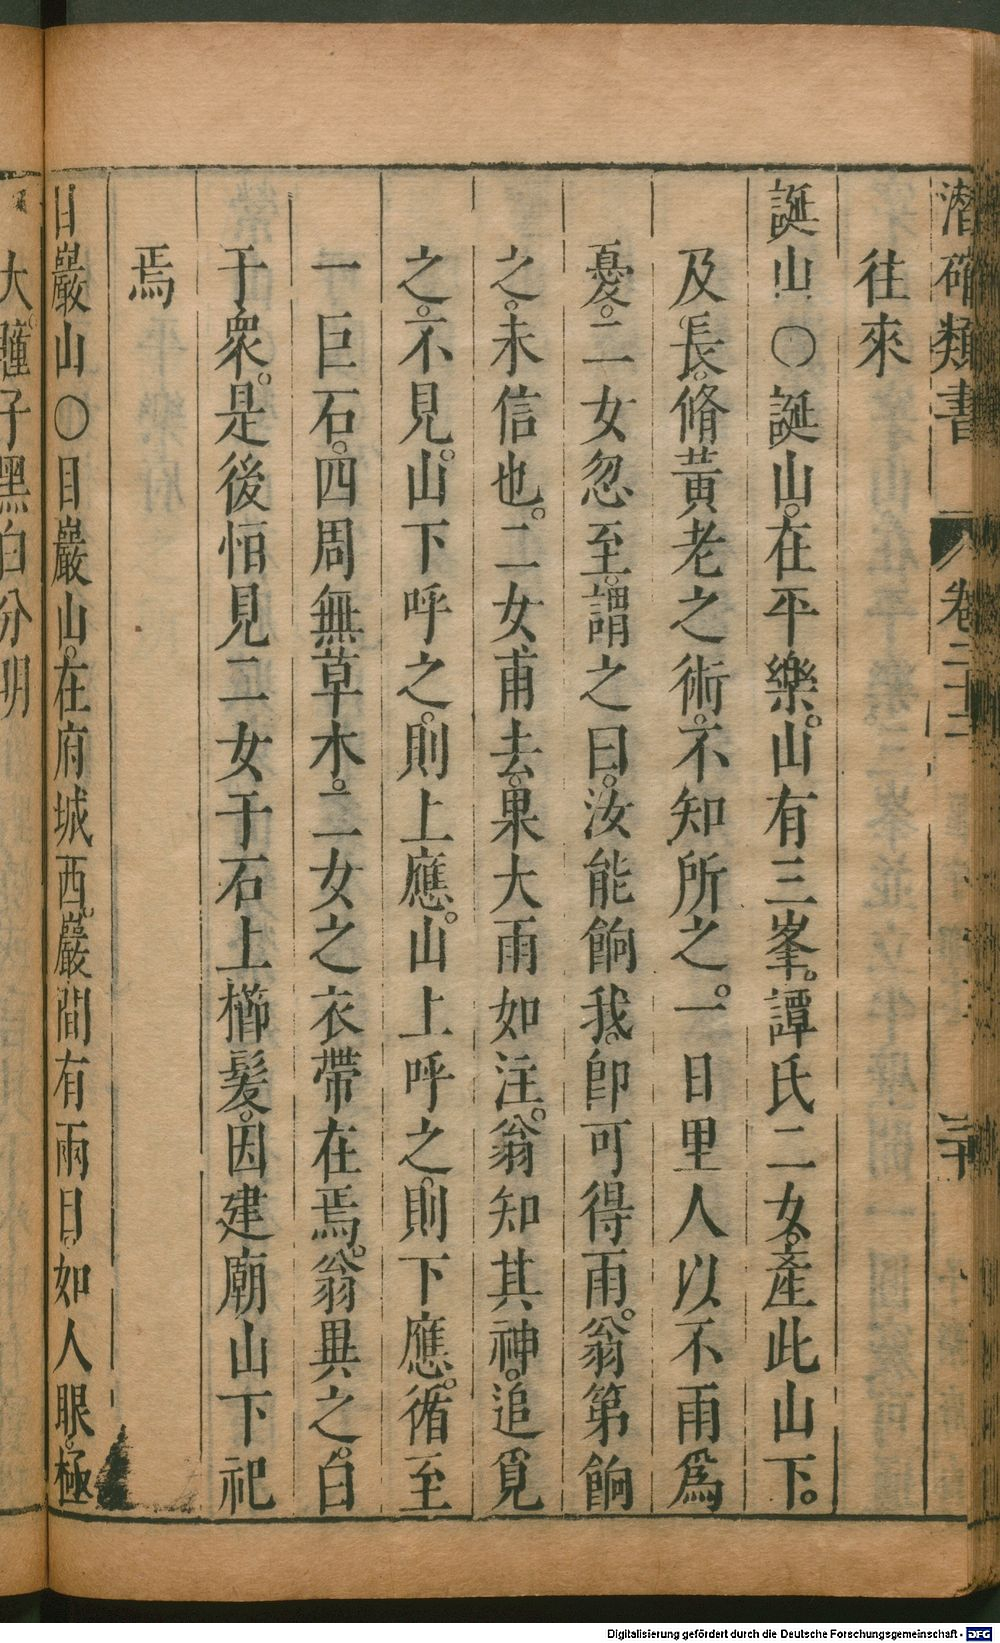 潛確類書 卷二十二 三十
往來
誕山○誕山。在平樂。山有三峯。譚氏二女。產此山下。
及長。脩黃老之術。不知所之。一日里人以不雨爲
憂。二女忽至。謂之曰。汝能餉我。卽可得雨。翁第餉
之。未信也。二女甫去。果大雨如注。翁知其神。追覓
之。不見。山下呼之。則上應。山上呼之。則下應。循至
一巨石。四周無草木。二女之衣帶在焉。翁異之。白
于衆。是後恒見二女于石上櫛髮。因建廟山下祀
焉
目巖山○目巖山。在府城西。巖間有兩目。如人眼。極
大。瞳子黑白分明
Digitalisierung gefördert durch die Deutsche Forschungsgemeinschaft - DFG